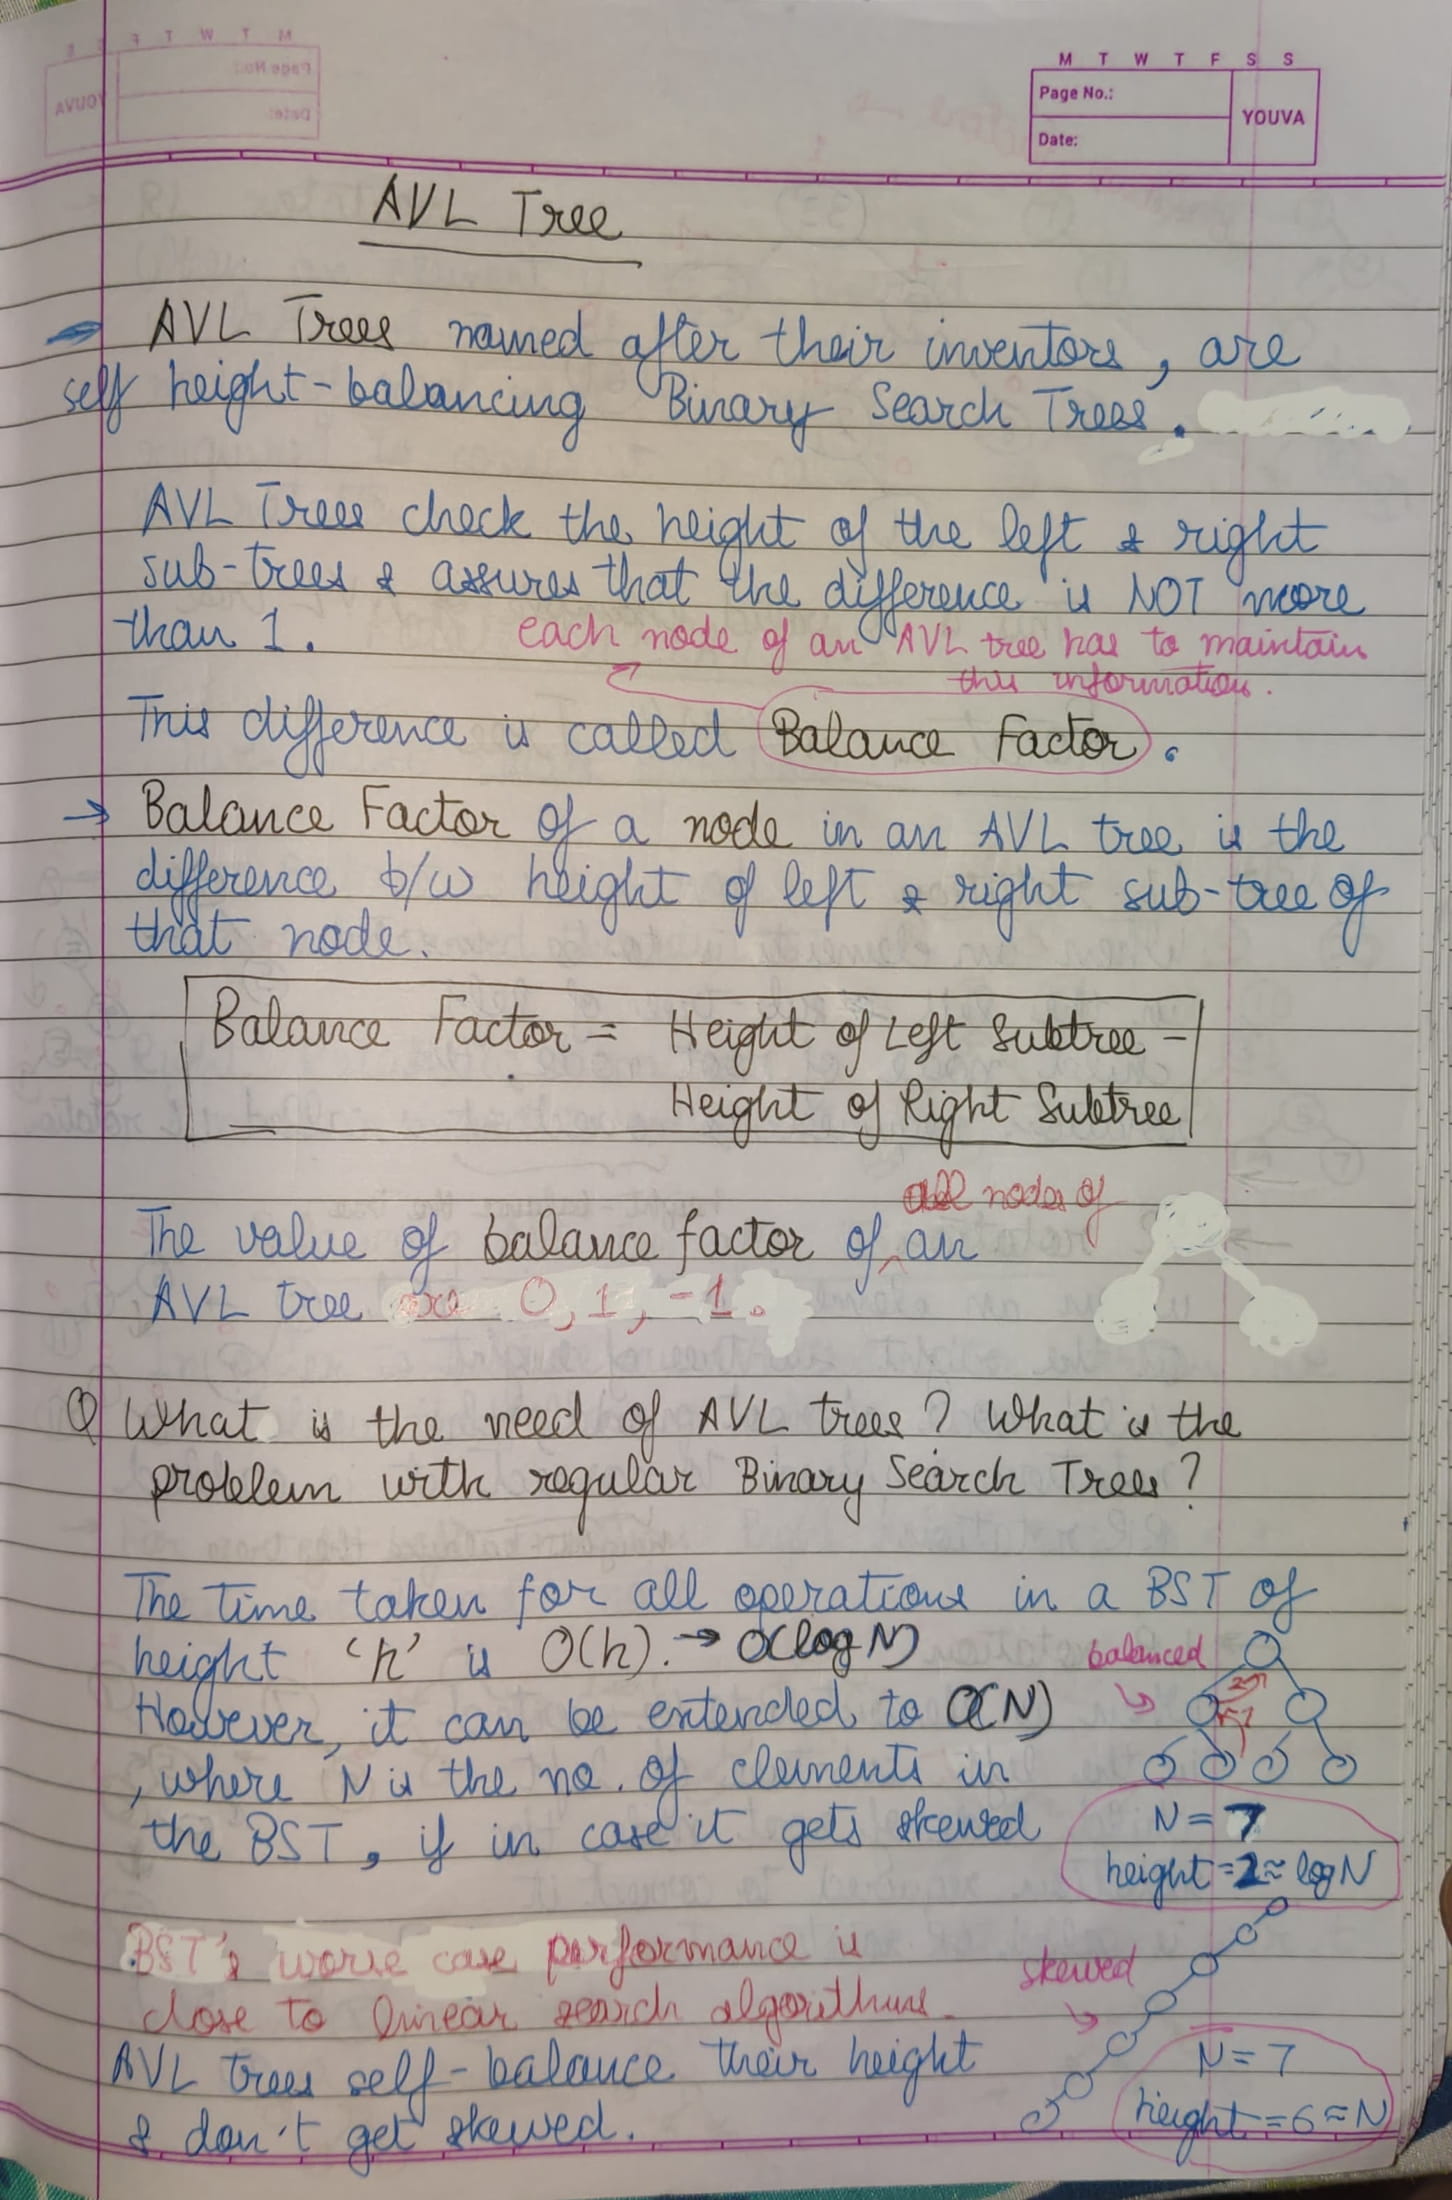 M T W T F S S
Page No.:
YOUVA
Date:
AVL Tree
AVL Trees named after their inventors, are
self height-balancing Binary Search Trees.
AVL Trees check the height of the left & right
sub-trees & assures that the difference is NOT more
than 1.
each node of an AVL tree has to maintain
this information.
This difference is called Balance Factor.
→ Balance Factor of a node in an AVL tree is the
difference b/w height of left & right sub-tree of
that node.
Balance Factor = Height of Left Subtree -
Height of Right Subtree
all nodes of
The value of balance factor of ^ an
AVL tree are 0, 1, -1.
Q What is the need of AVL trees? What is the
problem with regular Binary Search Trees?
The time taken for all operations in a BST of
height 'h' is O(h). → O(log N)
balanced
However, it can be extended to O(N)
, where N is the no. of elements in
the BST, if in case it gets skewed
N = 7
height = 2 ≈ log N
BST's worse case performance is
close to linear search algorithms.
skewed
AVL trees self-balance their height
& don't get skewed.
N = 7
height = 6 ≈ N